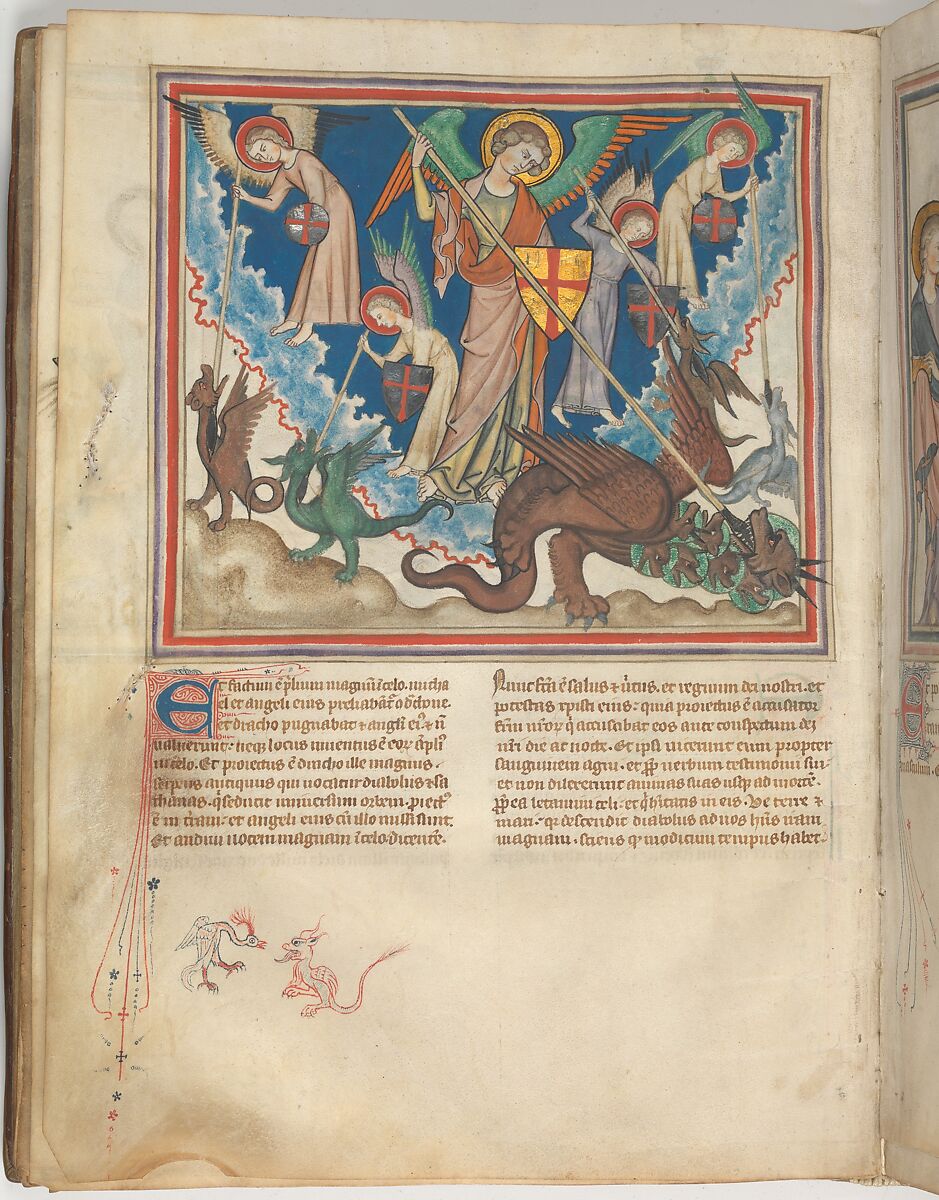 Et factum ē p̄lium magnū ī celo. micha
el et angeli eius preliabāt᷑ c̄ dᵃcone.
et dracho pugnabat ⁊ angłi eiꝰ ⁊ ñ
ualuerunt. neqꝫ locus inuentus ē eoꝝ āpliꝰ
in celo. Et proiectus ē dracho ille magnus.
serpens antiquus qui uocatur diabolus ⁊ sa
thanas. q̇ seducit uniuersum orbem. piectꝰ
ē in t̄ram. et angeli eius cū illo missi sunt.
Et audiui uocem magnam ī celo dicentē.
Nunc fc̄a ē salus ⁊ uirtus. et regnum dei nostri. et
potestas xpisti eius. quia proiectus ē accusator
fr̄m nr̄oꝝ q̇ accusabat eos ante conspectum dei
nr̄i die ac nocte. Et ipsi uicerunt eum propter
sanguinem agni. et ꝓp̄ uerbum testimonii sui.
et non dilexerunt animas suas usqꝫ ad mortē.
ꝓp̄ea letamini celi. et q̇ hītatis in eis. Ve terre ⁊
mari. qꝛ descendit diabolus ad uos hn̄s iram
magnam. sciens ꝙ modicum tempus habet.